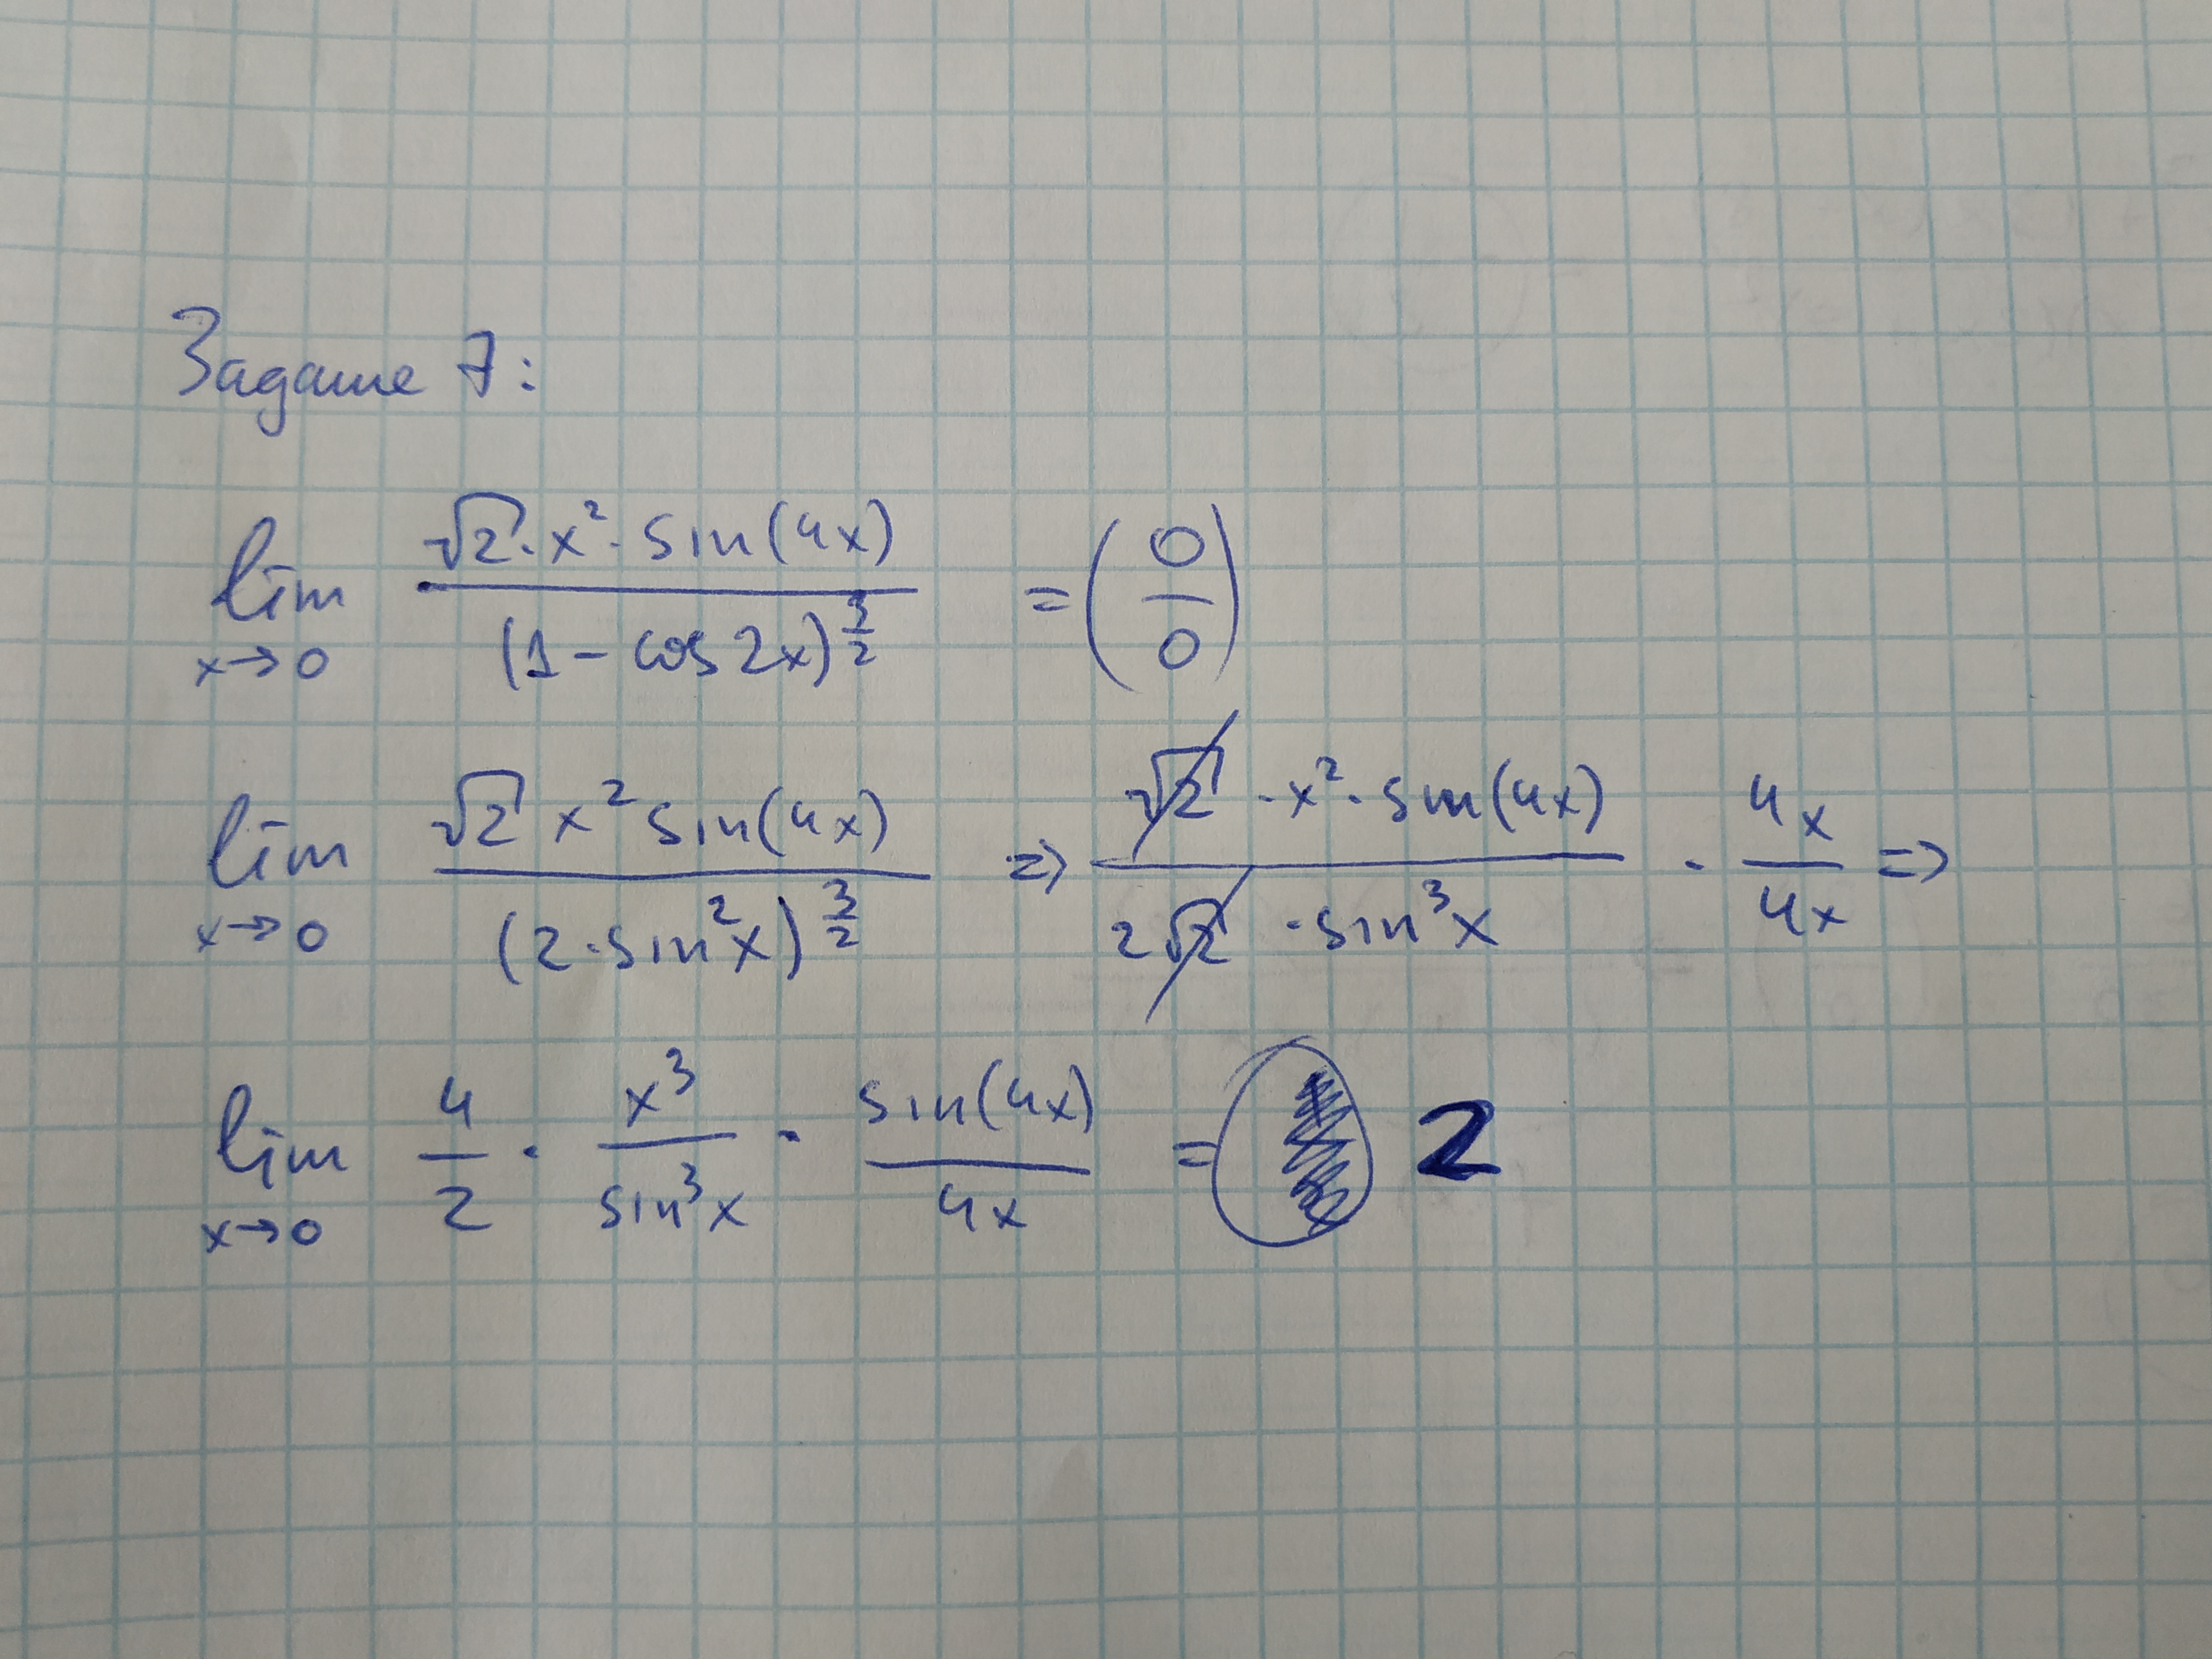 Задание 7:
lim x→0 (√2 · x² · sin(4x)) / (1 - cos 2x)^(3/2) = (0/0)
lim x→0 (√2 x² sin(4x)) / (2 · sin²x)^(3/2) => (√2 · x² · sin(4x)) / (2√2 · sin³x) · 4x/4x =>
lim x→0 4/2 · x³/sin³x · sin(4x)/4x = 2